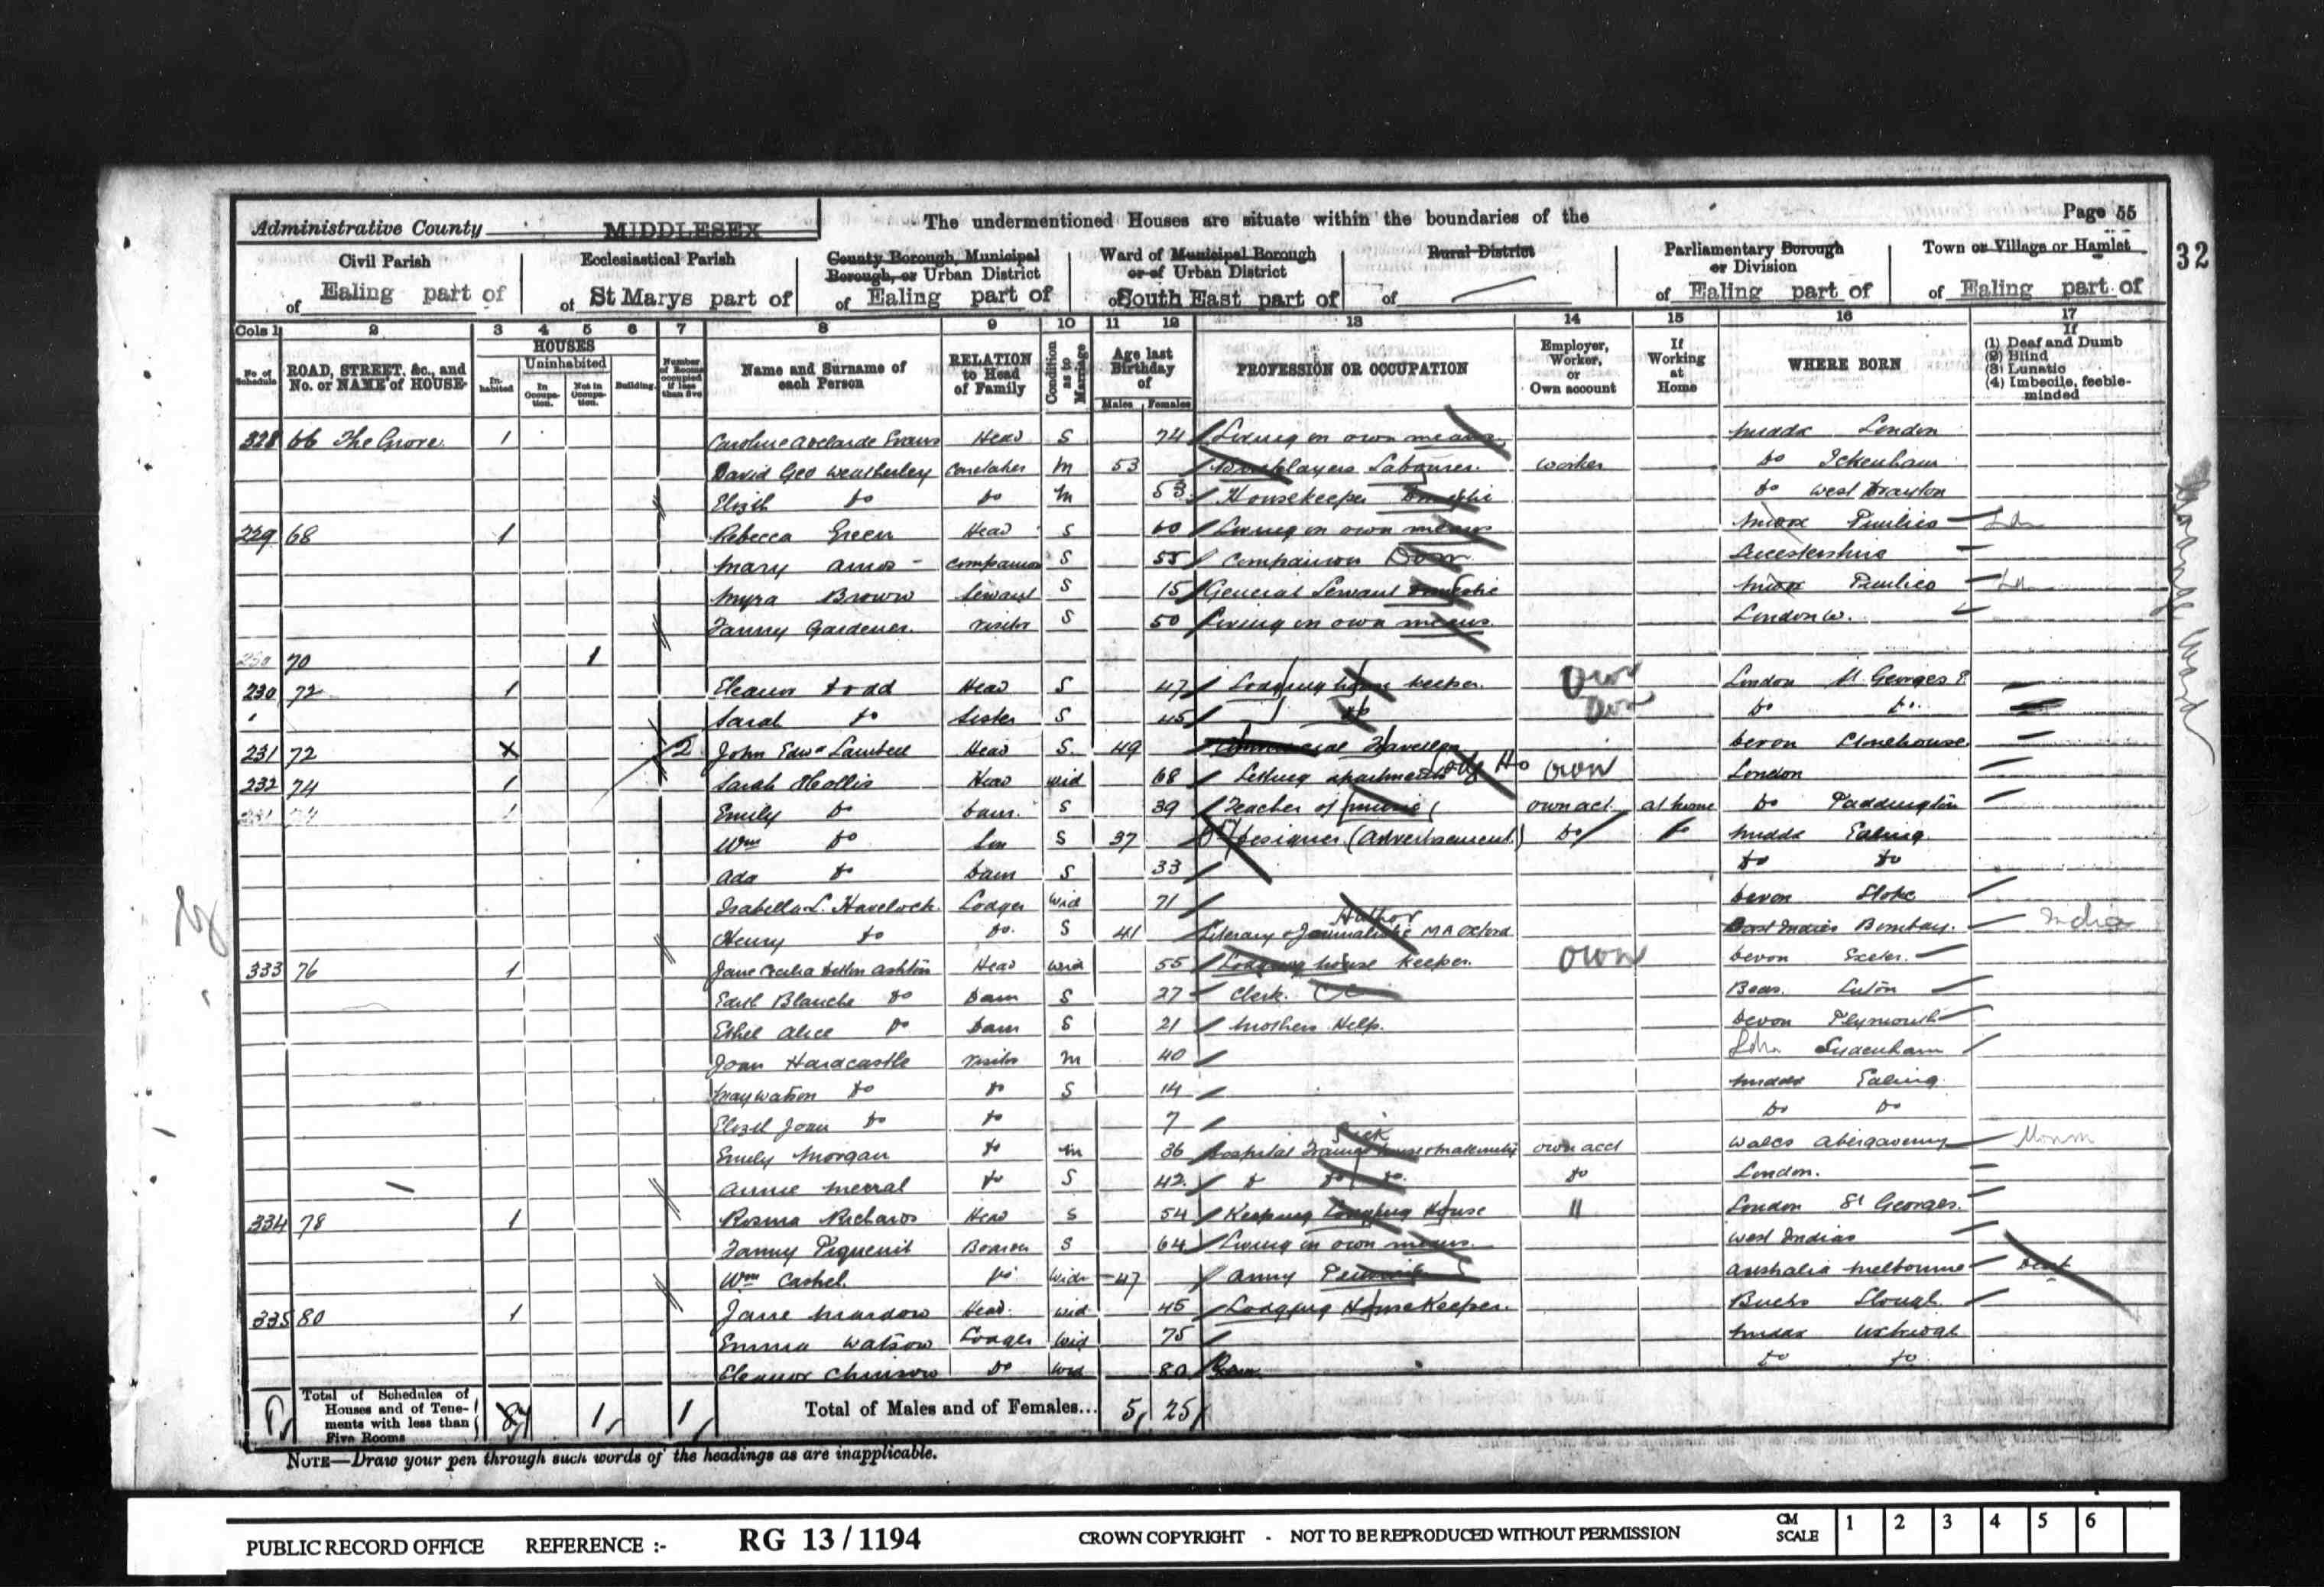 Administrative County MIDDLESEX
The undermentioned Houses are situate within the boundaries of the
Page 55
32
Civil Parish
of Ealing part of
Ecclesiastical Parish
of St Marys part of
County Borough, Municipal Borough, or Urban District
of Ealing part of
Ward of Municipal Borough or of Urban District
of South East part of
Rural District
of
Parliamentary Borough or Division
of Ealing part of
Town or Village or Hamlet
of Ealing part of
Cols 1 2 3 4 5 6 7 8 9 10 11 12 13 14 15 16 17
No. of Schedule
ROAD, STREET, &c., and No. or NAME of HOUSE
HOUSES
Inhabited
Uninhabited
In Occupation.
Not in Occupation.
Building.
Number of Rooms occupied if less than five
Name and Surname of each Person
RELATION to Head of Family
Condition as to Marriage
Age last Birthday of
Males Females
PROFESSION OR OCCUPATION
Employer, Worker, or Own account
If Working at Home
WHERE BORN
If
(1) Deaf and Dumb
(2) Blind
(3) Lunatic
(4) Imbecile, feeble-minded
328 66 The Grove 1 Caroline Adelaide Evans Head S 74 Living on own means Middx London
David Geo Weatherley Caretaker M 53 Labourer Worker do Ickenham
Elizth do do M 53 Housekeeper Domestic do West Drayton
229 68 1 Rebecca Green Head S 60 Living on own means Middx Pimlico
Mary Amos Companion S 55 Companion Dom Leicestershire
Myra Brown Servant S 15 General Servant Domestic Middx Pimlico
Fanny Gardener Visitor S 50 Living on own means London W.
70 1
230 72 1 Eleanor Todd Head S 47 Lodging house keeper Own London St Georges E
Sarah do Sister S 45 do Own do do
231 72 X 2 John Edwd Head S 49 Commercial Traveller Devon Stonehouse
232 74 1 Sarah Hollis Head Wid 68 Letting apartments Own London
Emily do Daur S 39 Teacher of music own act at home do Paddington
Wm do Son S 37 Designer (Advertisement) do do Middx Ealing
Ada do Daur S 33 do do
Isabella L. Havelock Lodger Wid 71 Devon Stoke
Henry do do S 41 Literary & Journalistic MA Oxford Author East Indies Bombay India
333 76 1 Jane Cecilia Ashton Head Wid 55 Lodging house keeper Own Devon Exeter
Edith Blanche do Daur S 27 Clerk Beds. Luton
Ethel Alice do Daur S 21 Mothers Help. Devon Plymouth
Joan Hardcastle Visitor M 40 Sydenham
May Watson do do S 14 Middx Ealing
Elizth Joan do do 7 do do
Emily Morgan do M 36 Hospital Trained Nurse Sick own acct Wales Abergavenny Monm
Annie Merral do S 42 do do do do London.
334 78 1 Rosina Richards Head S 54 Keeping Lodging House " London St Georges
Fanny Piguenit Boarder S 64 Living on own means West Indies
Wm Cashel do Widr 47 Army Australia Melbourne Deaf
335 80 1 Jane Head Wid 45 Lodging House Keeper Bucks Slough
Emma Watson Lodger Wid 75 Middx Uxbridge
Eleanor do Wid 80 do do
Total of Schedules of Houses and of Tenements with less than Five Rooms
1 1
Total of Males and of Females... 5 25
NOTE—Draw your pen through such words of the headings as are inapplicable.
PUBLIC RECORD OFFICE REFERENCE :- RG 13/1194 CROWN COPYRIGHT - NOT TO BE REPRODUCED WITHOUT PERMISSION
CM SCALE 1 2 3 4 5 6